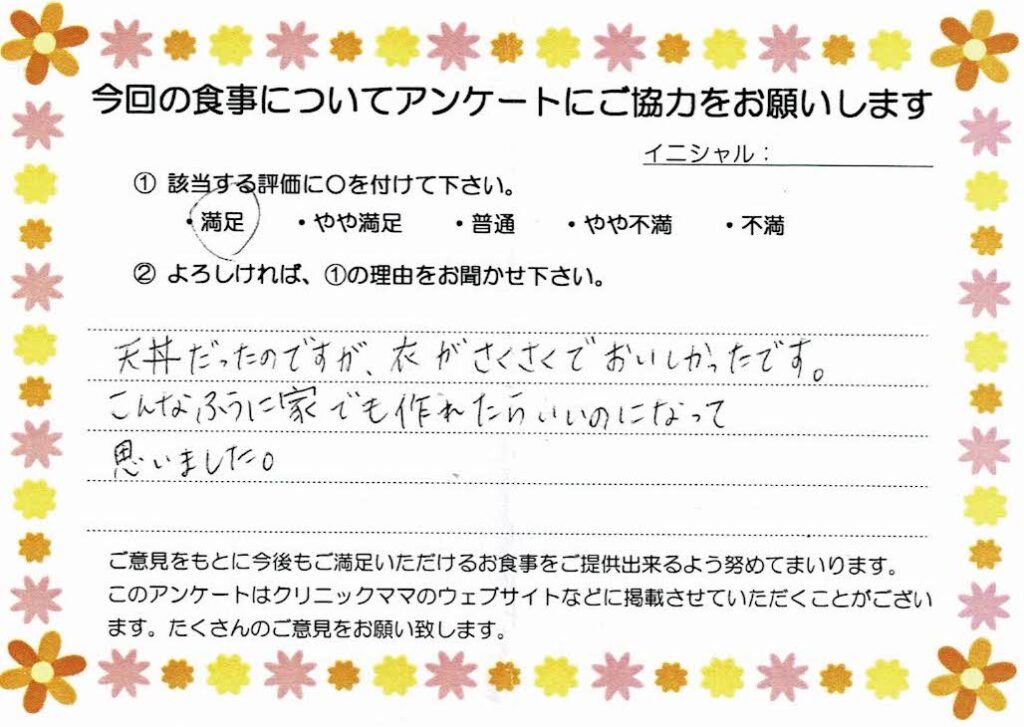 今回の食事についてアンケートにご協力をお願いします
イニシャル：
① 該当する評価に〇を付けて下さい。
・満足 ・やや満足 ・普通 ・やや不満 ・不満
② よろしければ、①の理由をお聞かせ下さい。
天丼だったのですが、衣がさくさくでおいしかったです。
こんなふうに家でも作れたらいいのになって
思いました。
ご意見をもとに今後もご満足いただけるお食事をご提供出来るよう努めてまいります。
このアンケートはクリニックママのウェブサイトなどに掲載させていただくことがござい
ます。たくさんのご意見をお願い致します。